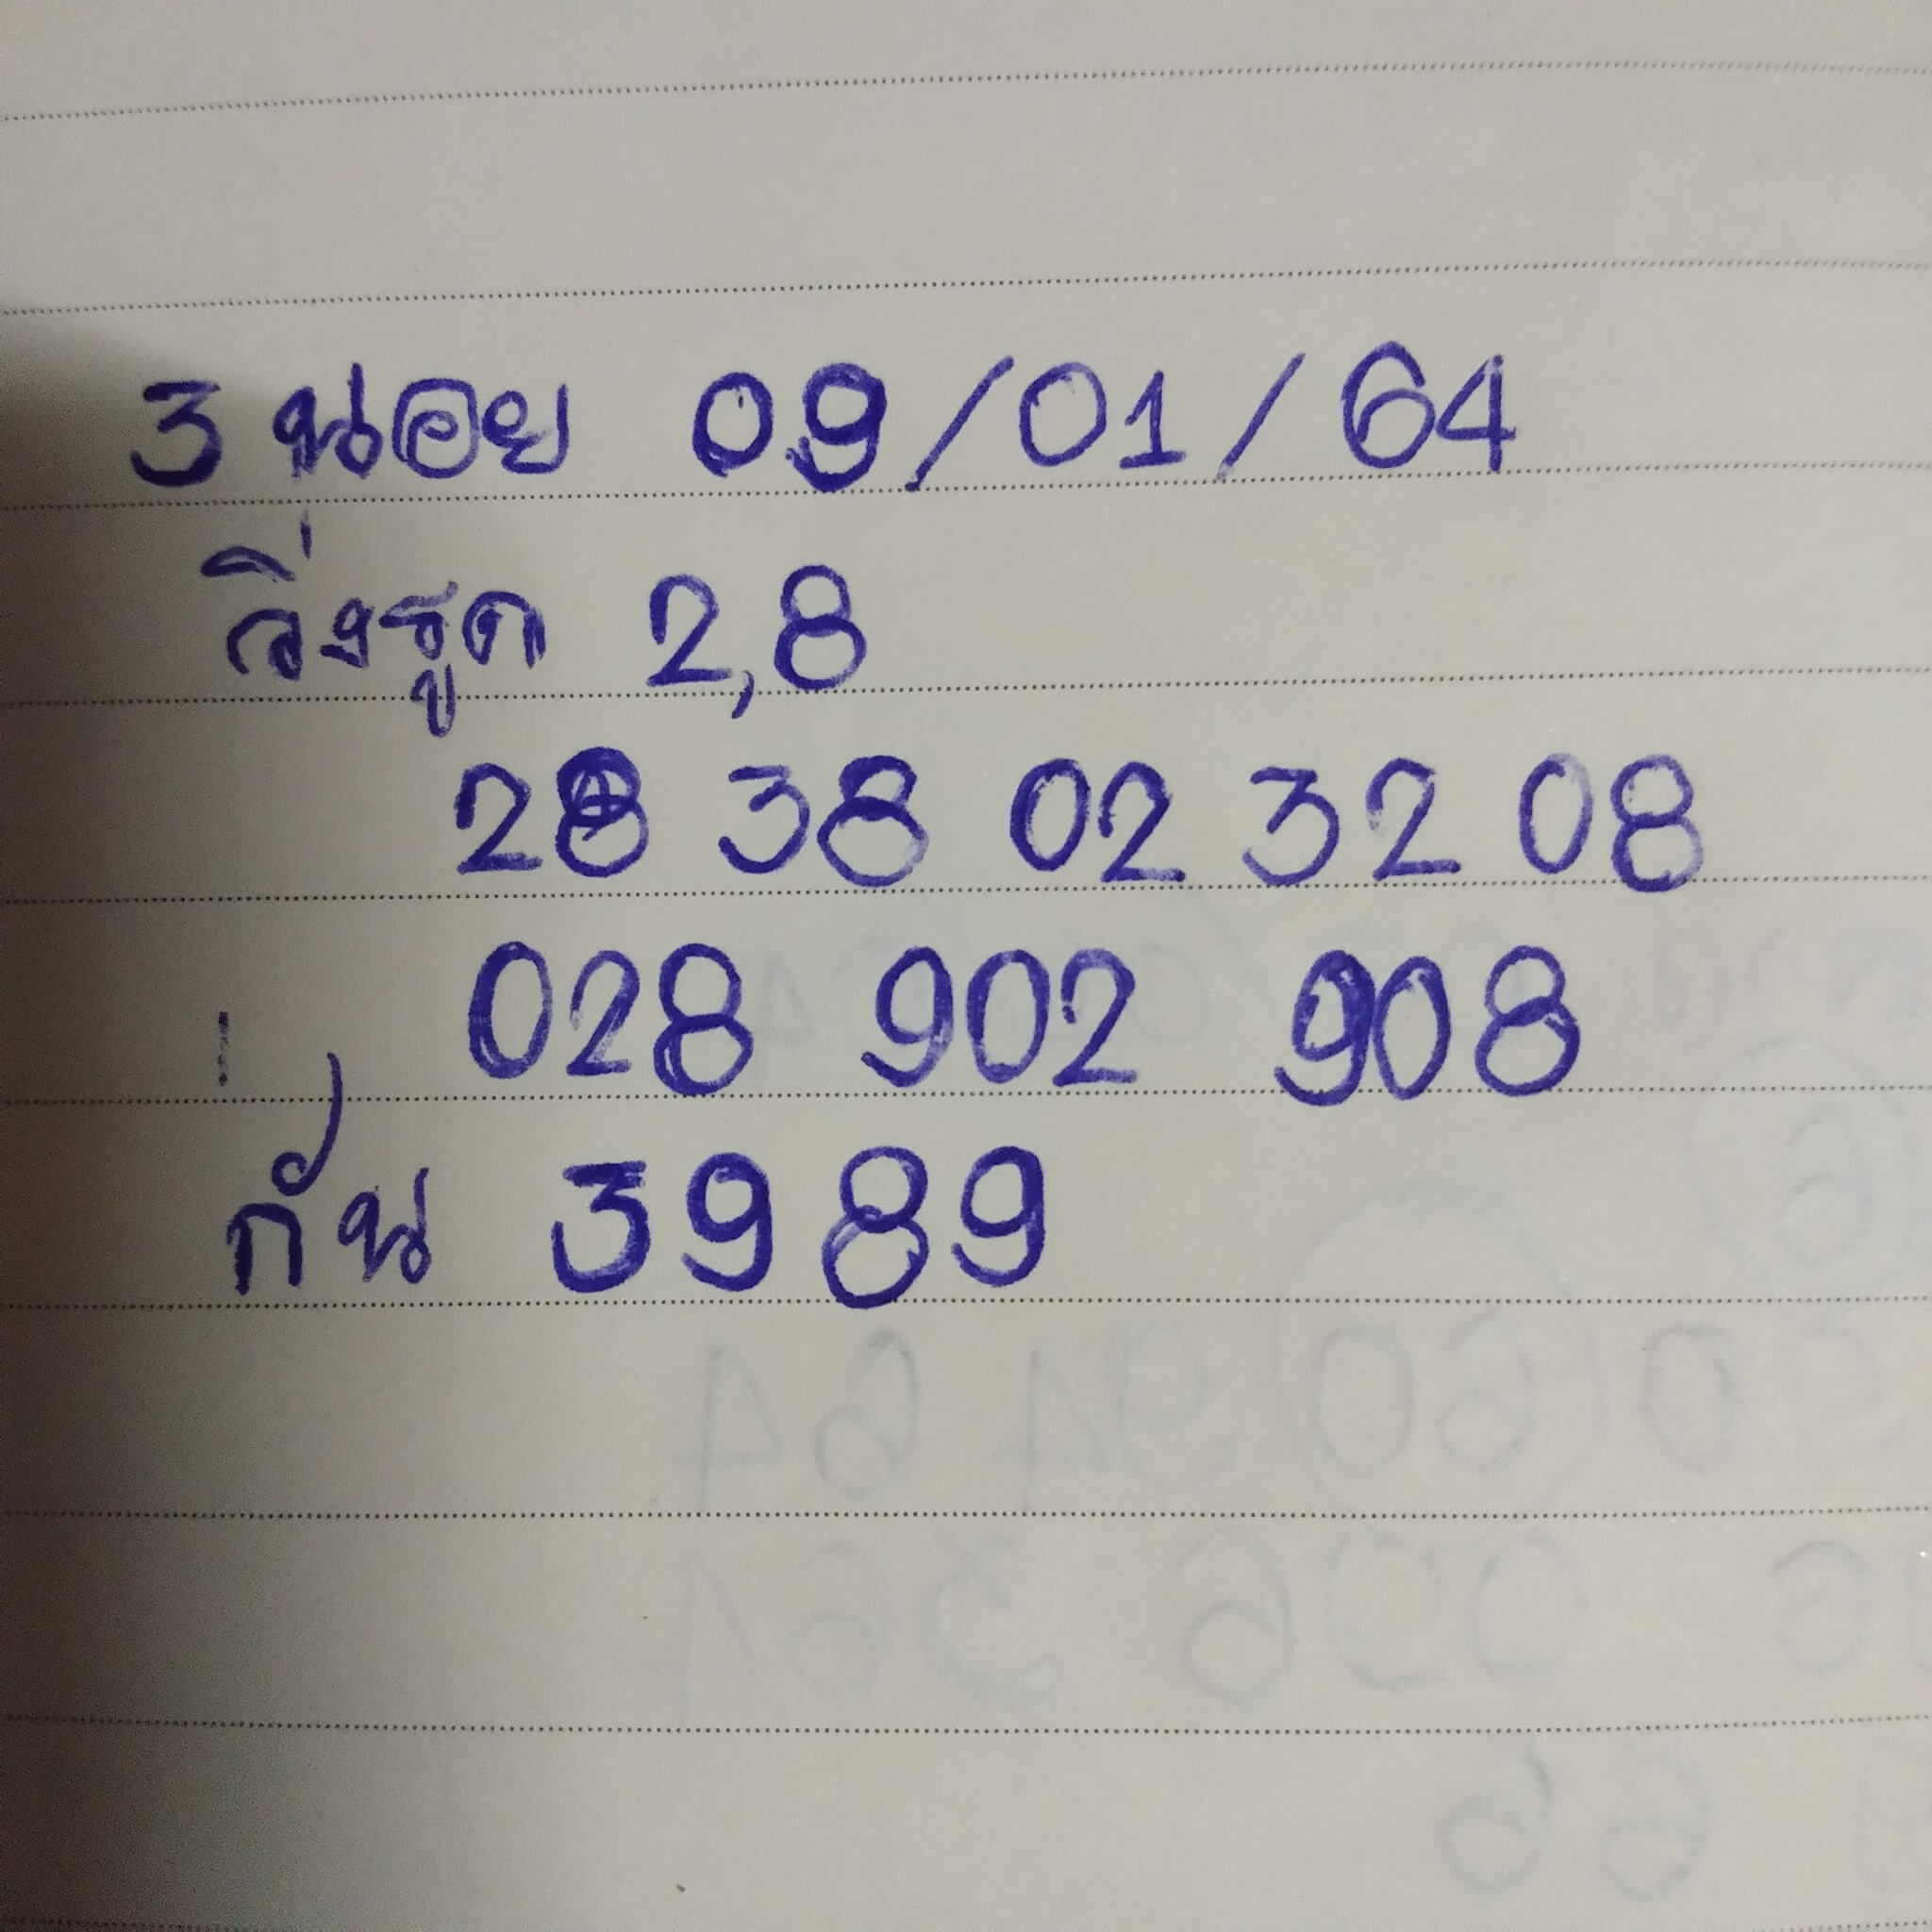 3 นอย 09/01/64
วิ่งรูด 2,8
28 38 02 32 08
028 902 908
กัน 39 89